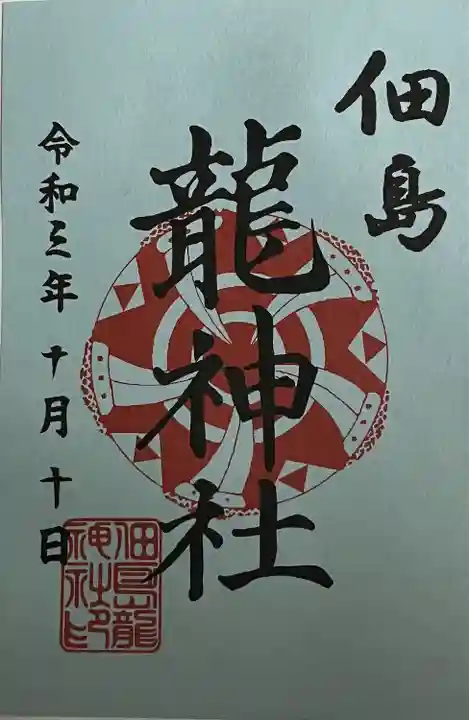 佃島
龍神社
令和三年十月十日
佃島龍
神社印